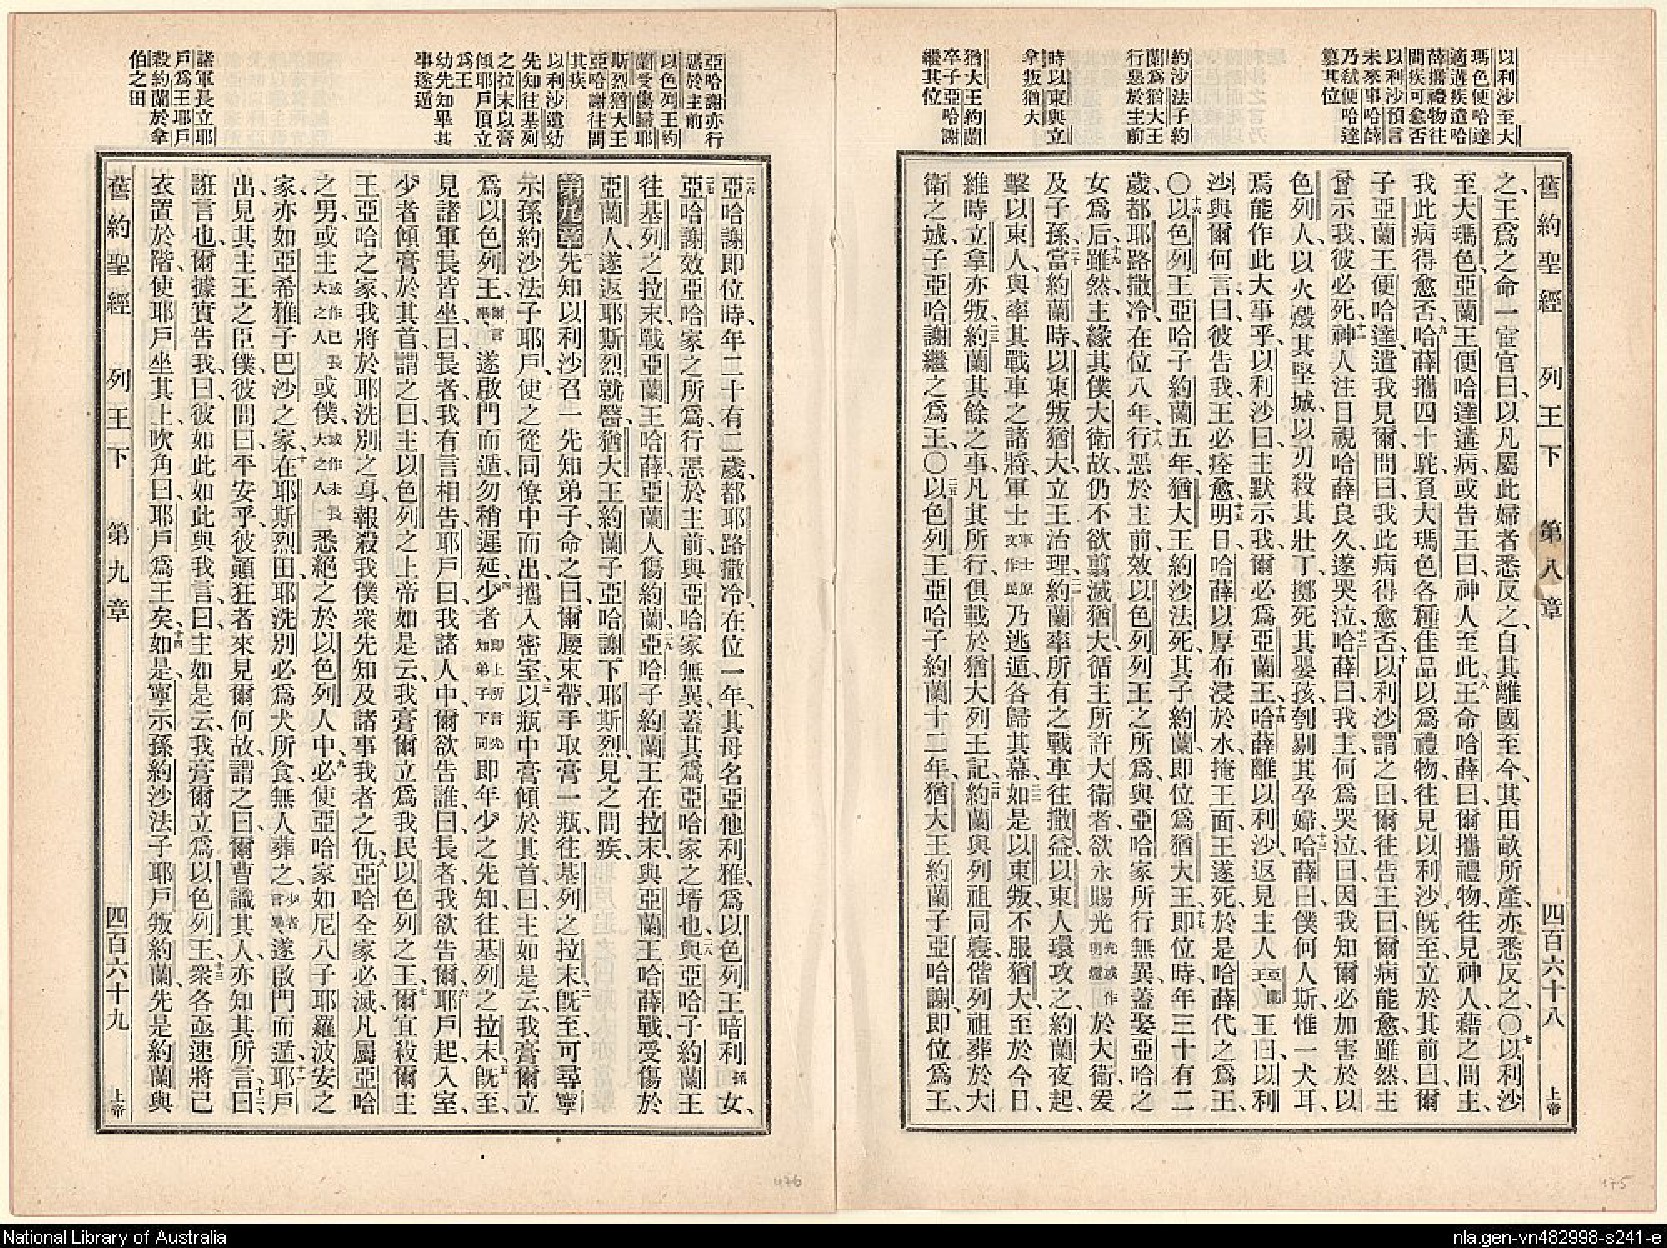 以利沙至大
瑪色便哈達
適遘疾遣哈
薛攜禮物往
問疾可愈否
以利沙預言
未來事哈薛
乃弒便哈達
篡其位
約沙法子約
蘭為猶大王
行惡於主前
時以東與立
拿叛猶大
猶大王約蘭
卒子亞哈謝
繼其位
舊約聖經 列王下 第八章 四百六十八 上帝
之王為之命一宦官曰以凡屬此婦者悉反之自其離國至今其田畝所產亦悉反之〇七以利沙
至大瑪色亞蘭王便哈達遘病或告王曰神人至此八王命哈薛曰爾攜禮物往見神人藉之問主
我此病得愈否九哈薛攜四十駝負大瑪色各種佳品以為禮物往見以利沙旣至立於其前曰爾
子亞蘭王便哈達遣我見爾問曰我此病得愈否十以利沙謂之曰爾往告王曰爾病能愈雖然主
曾示我彼必死十一神人注目視哈薛良久遂哭泣十二哈薛曰我主何為哭泣曰因我知爾必加害於以
色列人以火燬其堅城以刃殺其壯丁擲死其嬰孩刳剔其孕婦十三哈薛曰僕何人斯惟一犬耳
焉能作此大事乎以利沙曰主默示我爾必為亞蘭王十四哈薛離以利沙返見主人亞蘭王王曰以利
沙與爾何言曰彼告我王必痊愈十五明日哈薛以厚布浸於水掩王面王遂死於是哈薛代之為王
〇十六以色列王亞哈子約蘭五年猶大王約沙法死其子約蘭即位為猶大王十七即位時年三十有二
歲都耶路撒冷在位八年十八行惡於主前效以色列列王之所為與亞哈家所行無異蓋娶亞哈之
女為后十九雖然主緣其僕大衛故仍不欲翦滅猶大循主所許大衛者欲永賜光光或作明燈於大衛爰
及子孫二十當約蘭時以東叛猶大立王治理二一約蘭率所有之戰車往撒益以東人環攻之約蘭夜起
擊以東人與率其戰車之諸將軍士軍士原文作民乃逃遁各歸其幕二二如是以東叛不服猶大至於今日
維時立拿亦叛二三約蘭其餘之事凡其所行俱載於猶大列王記二四約蘭與列祖同寢偕列祖葬於大
衛之城子亞哈謝繼之為王〇二五以色列王亞哈子約蘭十二年猶大王約蘭子亞哈謝即位為王
亞哈謝亦行
惡於主前
以色列王約
蘭受傷歸耶
斯烈猶大王
亞哈謝往問
其疾
以利沙遣幼
先知往基列
之拉末以膏
傾耶戶頂立
為王
幼先知畢其
事遂遁
諸軍長立耶
戶為王耶戶
殺約蘭於拿
伯之田
二六亞哈謝即位時年二十有二歲都耶路撒冷在位一年其母名亞他利雅為以色列王暗利孫女
二七亞哈謝效亞哈家之所為行惡於主前與亞哈家無異蓋其為亞哈家之壻也二八與亞哈子約蘭王
往基列之拉末戰亞蘭王哈薛亞蘭人傷約蘭二九亞哈子約蘭王在拉末與亞蘭王哈薛戰受傷於
亞蘭人遂返耶斯烈就醫猶大王約蘭子亞哈謝下耶斯烈見之問疾
第九章一先知以利沙召一先知弟子命之曰爾腰束帶手取膏一瓶往基列之拉末二旣至可尋寧
示孫約沙法子耶戶使之從同僚中而出攜入密室三以瓶中膏傾於其首曰主如是云我膏爾立
為以色列王爾言畢遂啟門而遁勿稍遲延四少者即上所言先知弟子下同即年少之先知往基列之拉末五旣至
見諸軍長皆坐曰長者我有言相告耶戶曰我諸人中爾欲告誰曰長者我欲告爾六耶戶起入室
少者傾膏於其首謂之曰主以色列之上帝如是云我膏爾立為我民以色列之王七爾宜殺爾主
王亞哈之家我將於耶洗別之身報殺我僕衆先知及諸事我者之仇八亞哈全家必滅凡屬亞哈
之男或主或作已長大之人或僕或作未長大之人悉絕之於以色列人中九必使亞哈家如尼八子耶羅波安之
家亦如亞希雅子巴沙之家十在耶斯烈田耶洗別必為犬所食無人葬之少者言畢遂啟門而遁十一耶戶
出見其主王之臣僕彼問曰平安乎彼顛狂者來見爾何故謂之曰爾曹識其人亦知其所言十二曰
誑言也爾據實告我曰彼如此如此與我言曰主如是云我膏爾立為以色列王十三衆各亟速將己
衣置於階使耶戶坐其上吹角曰耶戶為王矣十四如是寧示孫約沙法子耶戶叛約蘭先是約蘭與
舊約聖經 列王下 第九章 四百六十九 上帝
476
475
National Library of Australia
nla.gen-vn482998-s241-e